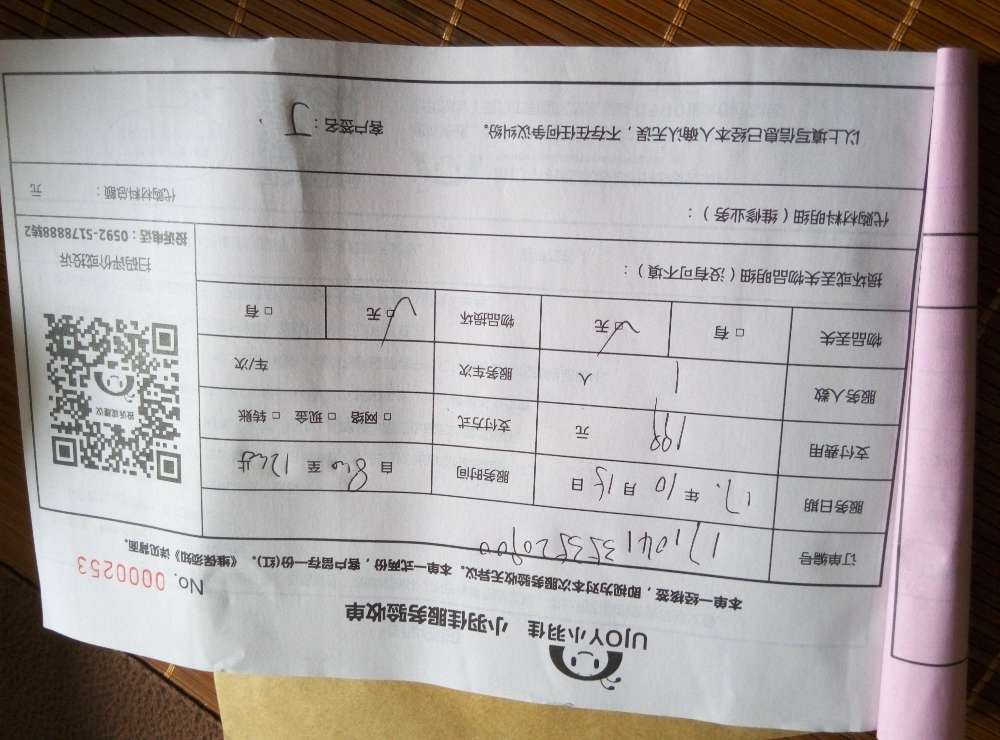 UJOY小羽佳 小羽佳服务验收单
No. 0000253
本单一经核签，即视为对本次服务验收无异议。本单一式两份，客户留存一份(红)。《维保须知》详见背面。
订单编号
服务日期 17. 年 10 月 16 日 服务时间 自 8:00 至 12:00 共
支付费用 199 元 支付方式 □ 网络 □ 现金 □ 转账
服务人数 1 人 服务车次 车/次
物品丢失 □ 有 □ 无 物品损坏 □ 无 □ 有
损坏或丢失物品明细（没有可不填）：
代购材料明细（维修业务）： 代购材料总额： 元
以上填写信息已经本人确认无误，不存在任何争议纠纷。 客户签名：
投诉或建议
扫码评价或投诉
投诉电话：0592-5178888转2